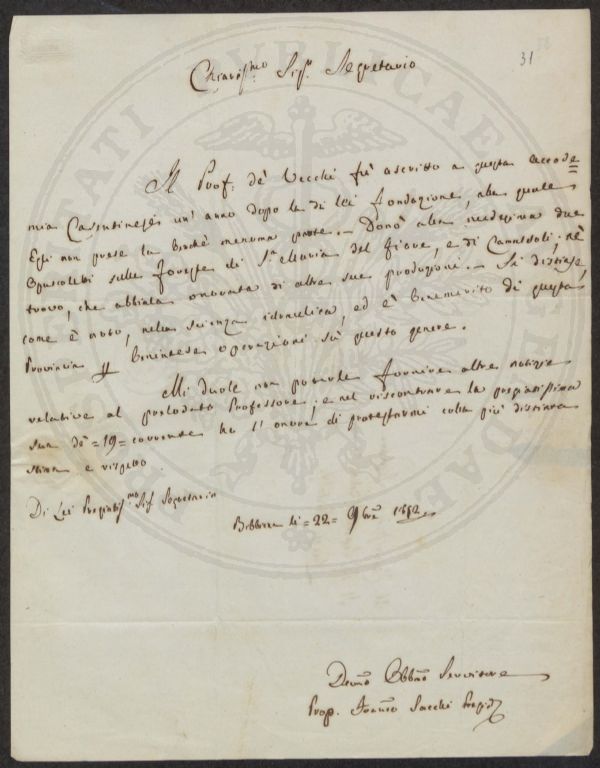 31
Chiariss.mo Sig.r Segretario
Il Prof: de' Vecchi fù ascritto a questa Accade=
mia Casentinese un' anno dopo la di lei fondazione, alla quale
Egli non prese la benchè menoma parte. Donò alla medesima due
Opuscoletti sulle Foreste di S.ta Maria del Fiore, e di Camaldoli; nè
trovo, che abbiala onorata di altre sue produzioni. Si distinse,
come è noto, nella scienza idraulica, ed è benemerito di questa
Provincia p operazioni sù questo genere.
Mi duole non poterle fornire altre notizie
relative al prelodato Professore; e nel riscontrare la pregiatissima
sua de' =19= corrente ho l' onore di protestarmi colla più distinta
stima e rispetto.
Di Lei Pregiatiss.mo Sig.r Segretario
Bibbiena li =22= 9bre
Devmo Obbmo Servitore
Prop. Sacchi
PROSPERITATI PUBLICAE